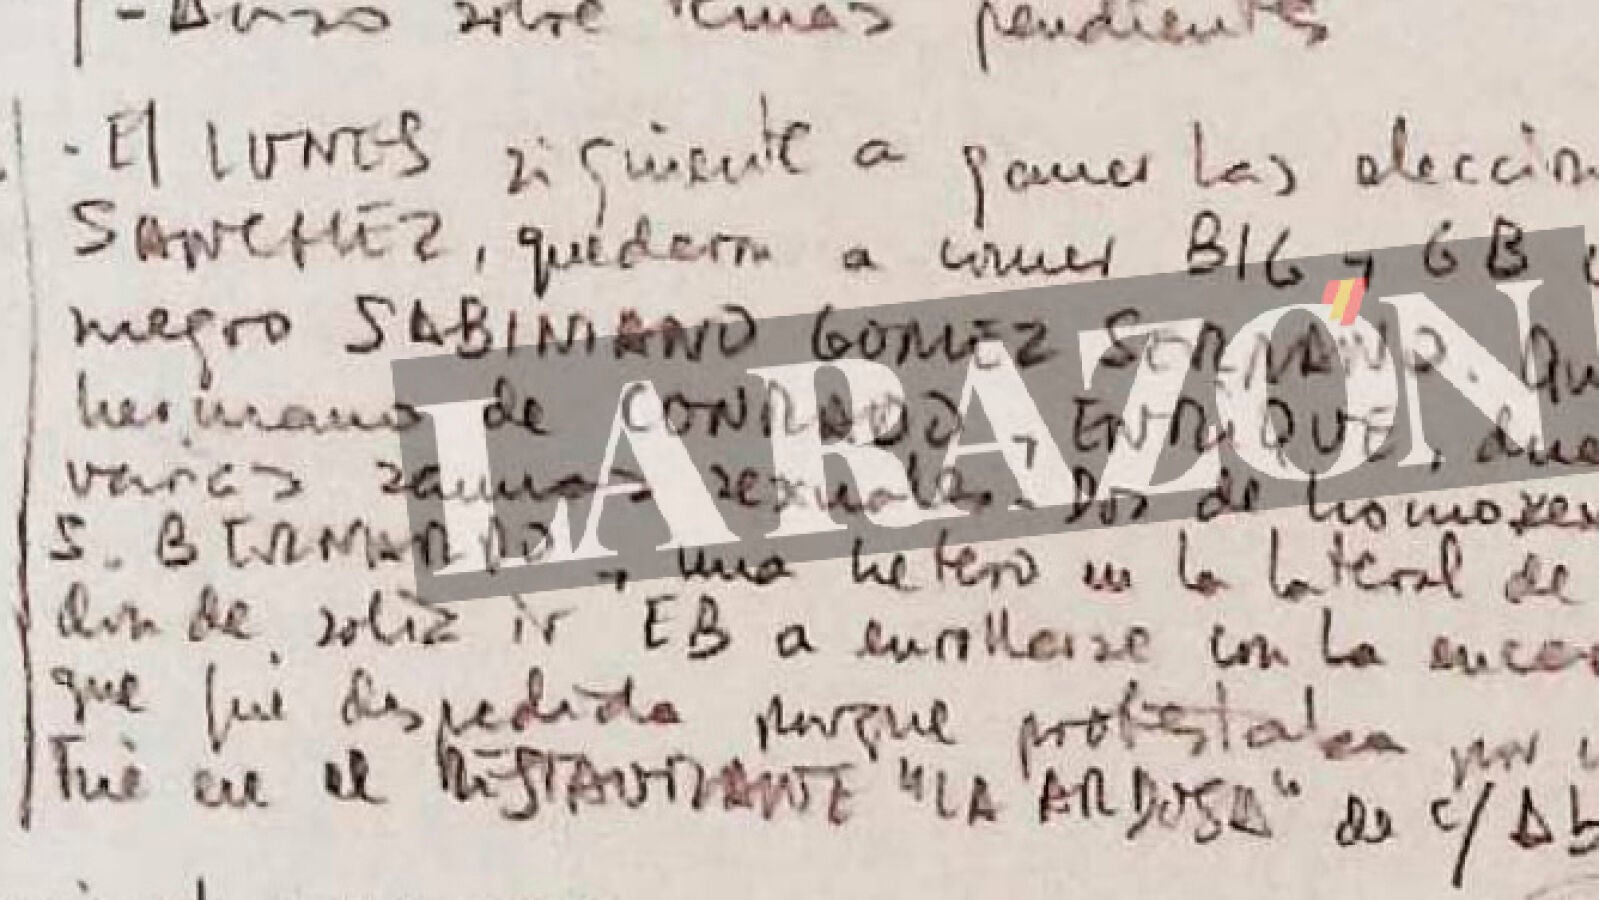 - Aviso sobre temas pendientes
- El LUNES siguiente a ganar las eleccion
SANCHEZ, quedaron a comer BIG y GB
negro SABINIANO GOMEZ SERRANO. Qu
hermano de CONRADO y ENRIQUE, due
varias saunas sexuales. Dos de homosex
S. BERNARDO y una hetero en la lateral de
donde solía ir EB a enrollarse con la encar
que fue despedida porque protestaba por
Fue en el RESTAURANTE "LA ARDOSA" de c/
LA RAZÓN